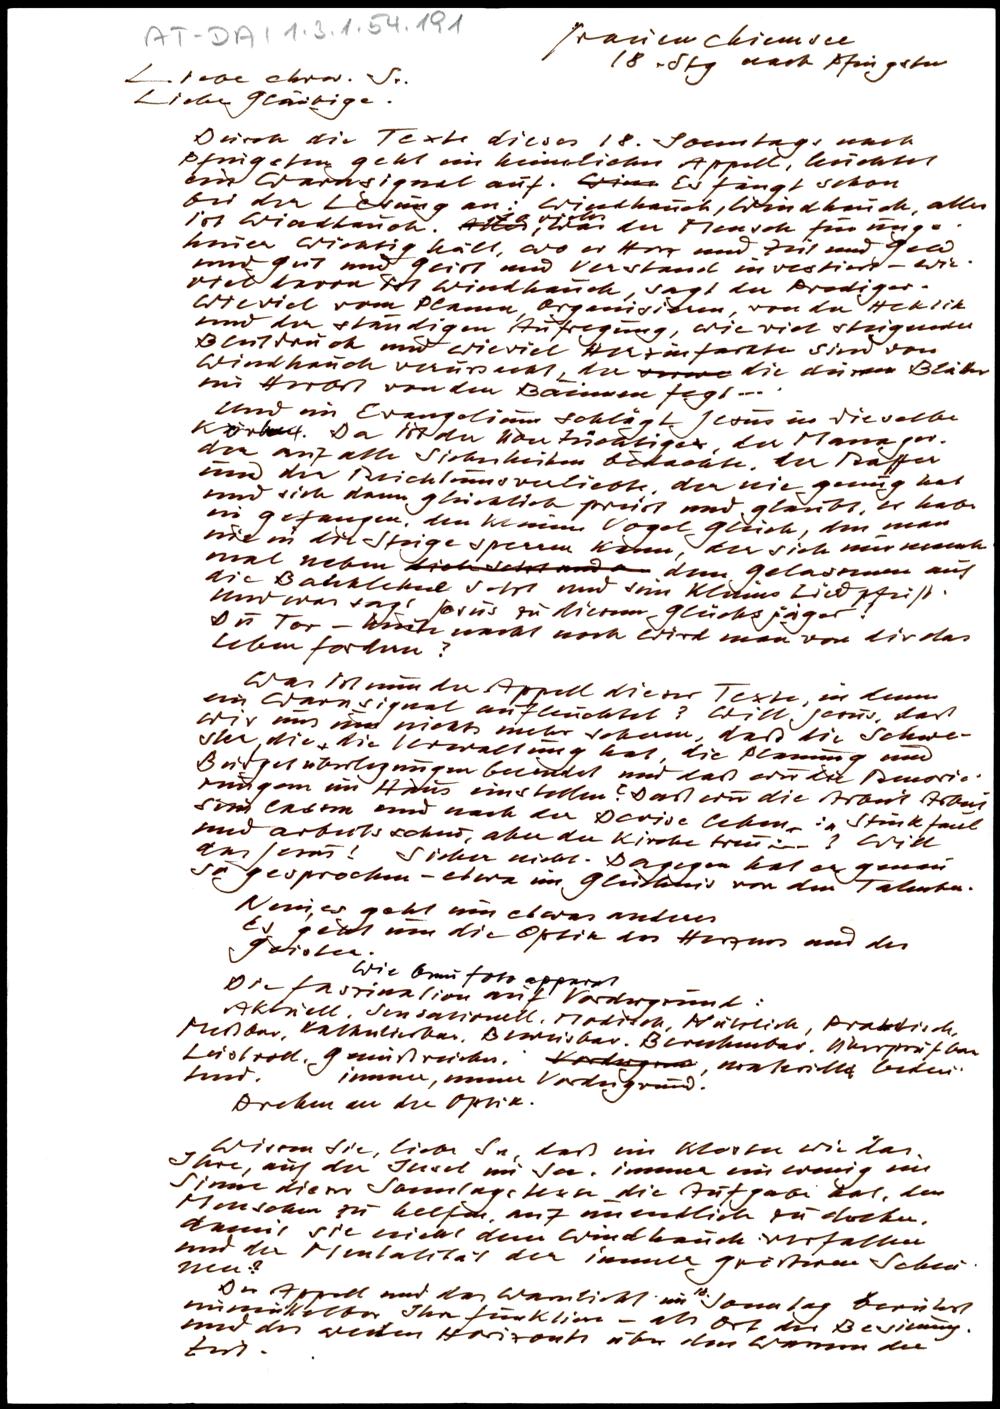 AT-DAI 1.3.1.54.191
Frauenchiemsee
18. Stg nach Pfingsten
Liebe ehrw. Sr.
Liebe Gläubige.
Durch die Texte dieses 18. Sonntags nach
Pfingsten geht ein heimlicher Appell, leuchtet
ein Warnsignal auf. Es fängt schon
bei der Lesung an: Windhauch, Windhauch, alles
ist Windhauch. was der Mensch für unge-
heuer wichtig hält, wo er Herz und Zeit und Geld
und Gut und Geist und Verstand investiert – wie-
viel davon ist Windhauch, sagt der Prediger.
Wieviel vom Planen, Organisieren, von der Hektik
und der ständigen Aufregung, wie viel steigender
Blutdruck und wieviel Herzinfarkte sind von
Windhauch verursacht, der die dürren Blätter
im Herbst von den Bäumen fegt ---
Und im Evangelium schlägt Jesus in dieselbe
Kerbe. Da ist der Übertüchtige, der Manager.
der auf alle Sicherheiten bedachte. der Raffer
und der Reichtumsverliebte, der nie genug hat
und sich dann glücklich preist und glaubt, er habe
ihn gefangen. den kleinen Vogel Glück, den man
nie in die Steige sperren kann, der sich nur manch-
mal neben dem Gelassenen auf
die Banklehne setzt und sein kleines Lied pfeift.
Und was sagt Jesus zu diesem Glücksjäger?
Du Tor – heute nacht noch wird man von dir das
Leben fordern?
Was ist nun der Appell dieser Texte, in denen
ein Warnsignal aufleuchtet? Will Jesus, daß
wir uns um nichts mehr scheren, daß die Schwe-
ster, die die Verwaltung hat, die Planung und
Budgetüberlegungen beendet und daß wir die Renovie-
rungen im Haus einstellen? Daß wir die Arbeit Arbeit
sein lassen und nach der Devise leben: "Stinkfaul
und arbeitsscheu, aber der Kirche treu"? Will
das Jesus! Sicher nicht. Dagegen hat er genau
so gesprochen – etwa im Gleichnis von den Talenten.
Nein, es geht um etwas anderes
Es geht um die Optik des Herzens und des
Geistes.
Wie beim Fotoapparat
Die Faszination auf Vordergrund:
Aktuell, Sensationell, Modisch, Nützlich, Praktisch,
Meßbar, Kalkulierbar, Beweisbar, Berechenbar, Überprüfbar
Lustvoll, Genußreicher. , materiell bedeu-
tend. immer, immer Vordergrund.
Drehen an der Optik.
Wissen Sie, liebe Sr., daß ein Kloster wie das
Ihre, auf der Insel im See, immer ein wenig im
Sinne dieser Sonntagstexte die Aufgabe hat, den
Menschen zu helfen, auf unendlich zu drehen,
damit sie nicht dem Windhauch verfallen
und der Mentalität der immer größeren Scheu-
nen?
Der Appell und das Warnlicht im 18. Sonntag berührt
unmittelbar Ihre Funktion – als Ort der Besinnung.
und des weiten Horizonts über den Wassern der
Zeit.